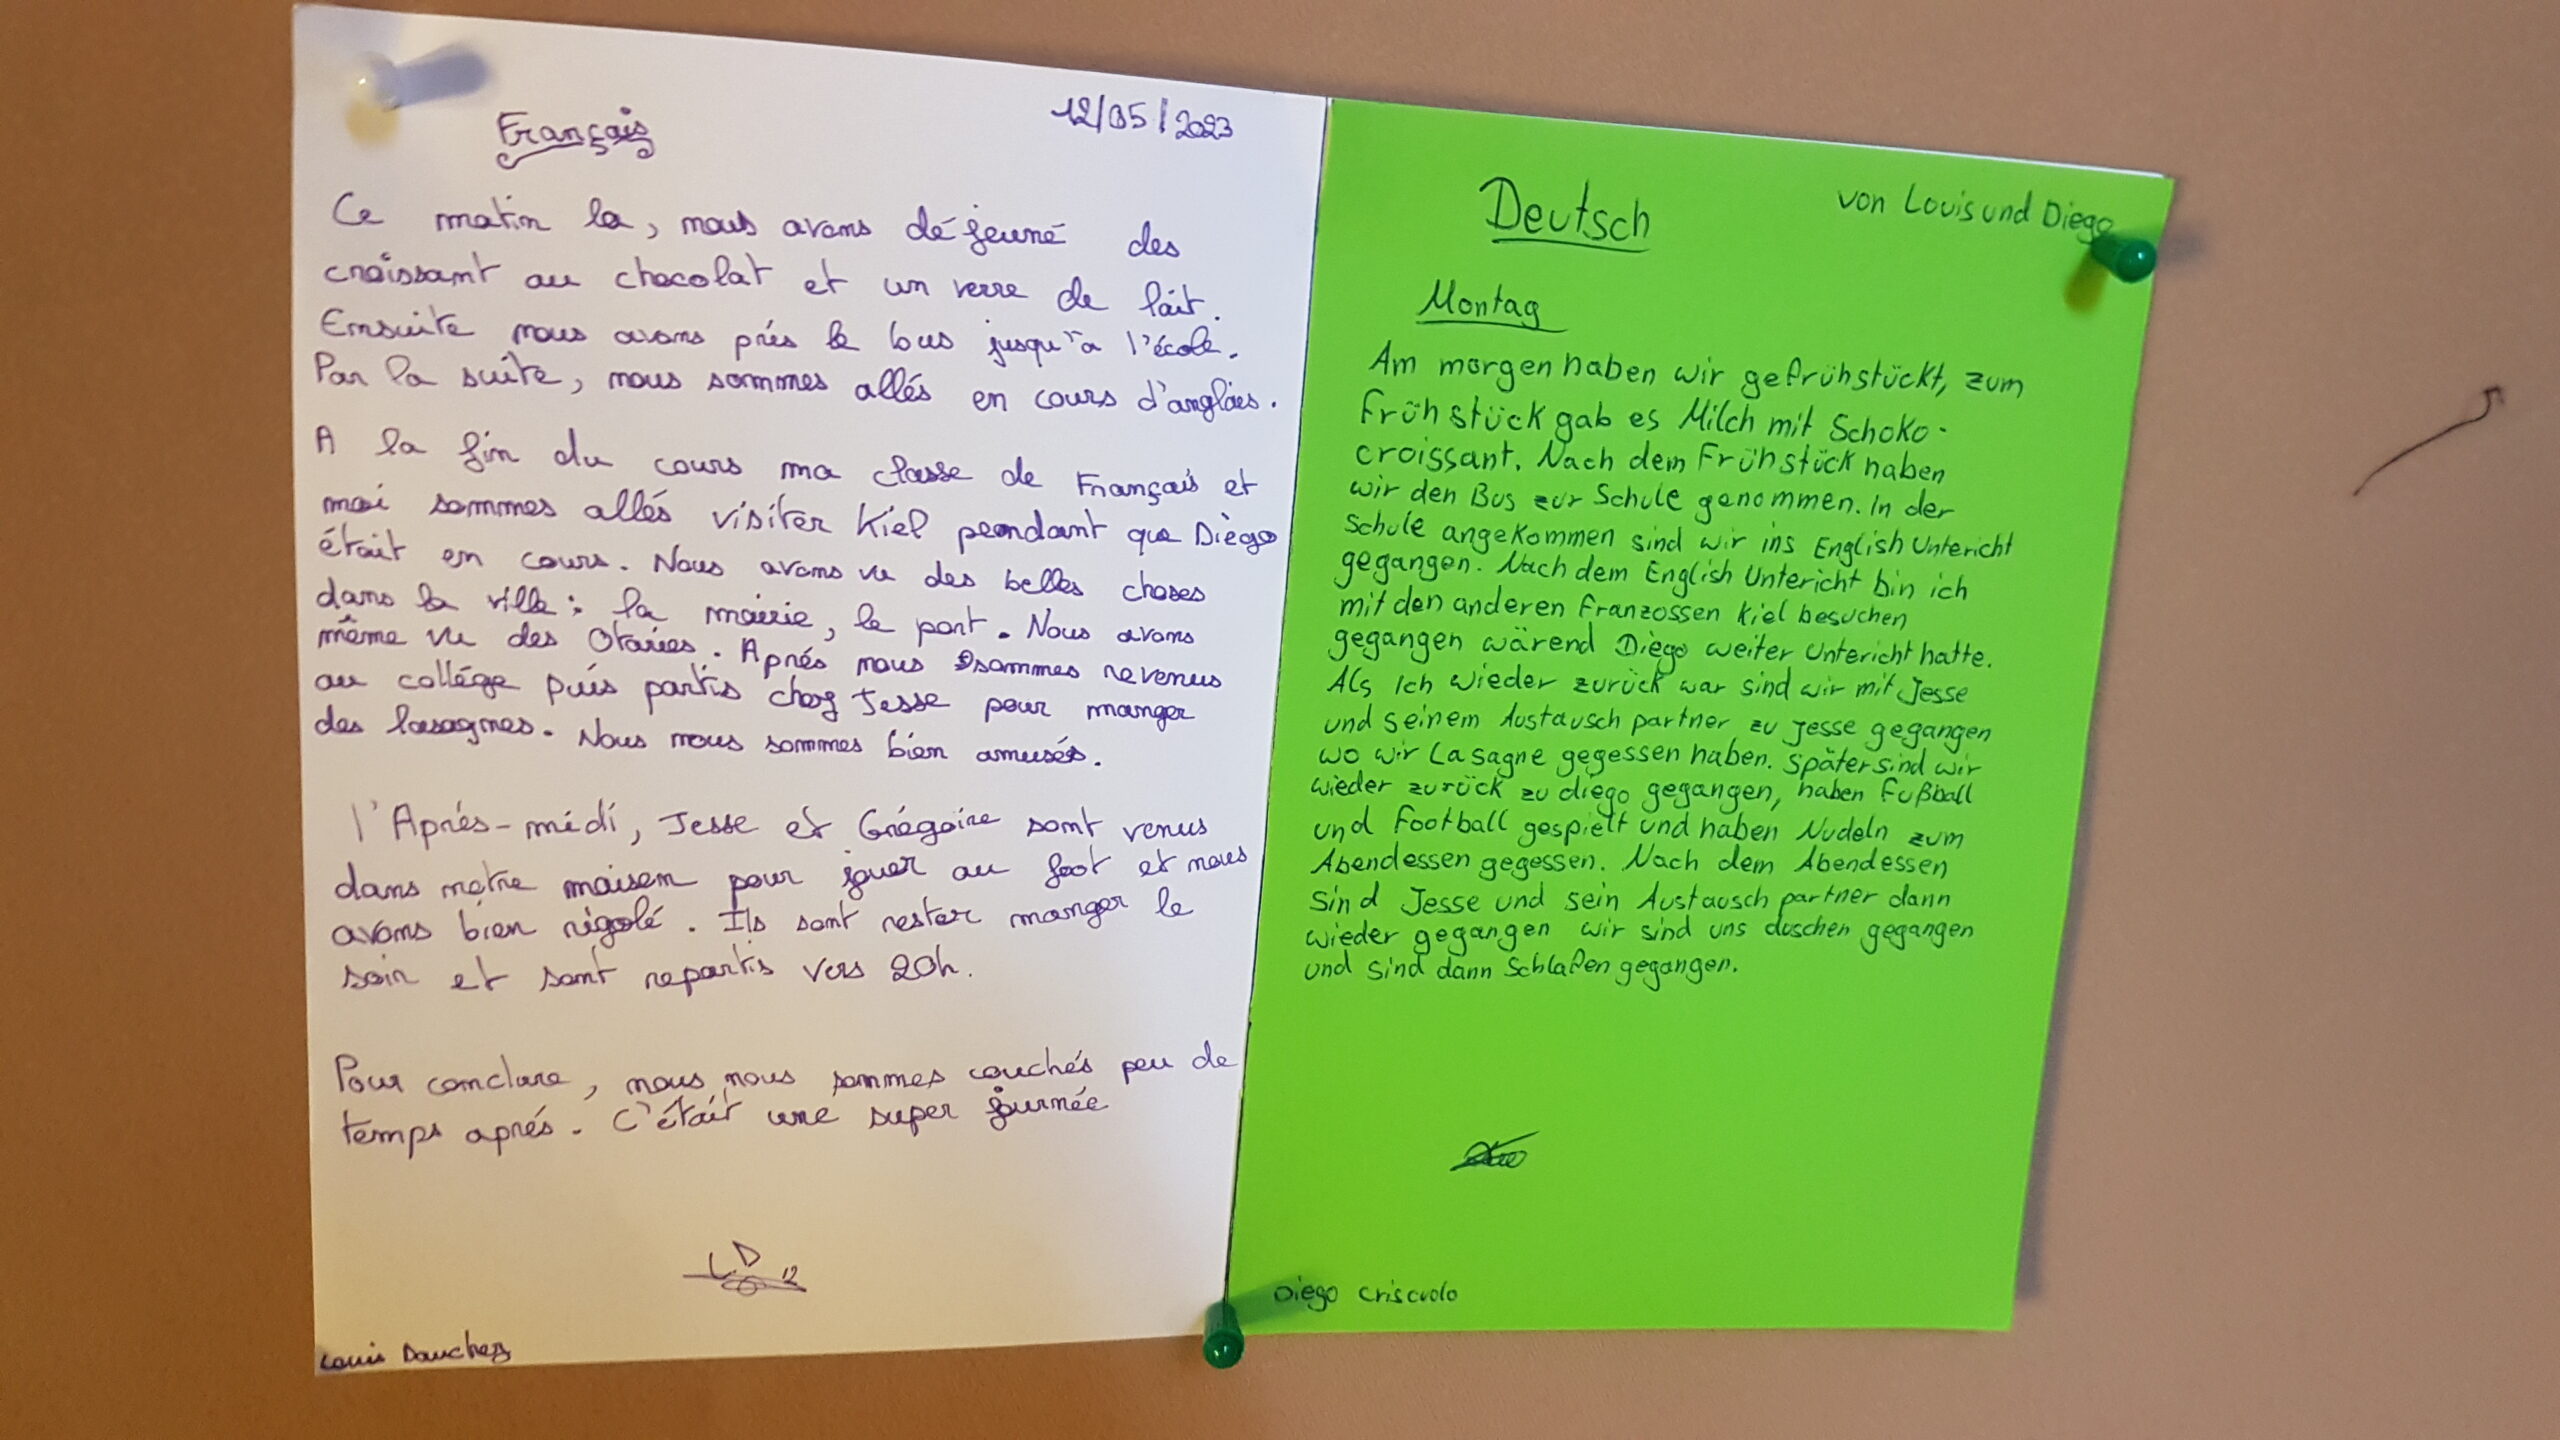 Français
12/05/2023
Ce matin la, nous avons déjeuné des
croissant au chocolat et un verre de lait.
Ensuite nous avons prés le bus jusqu'à l'école.
Par la suite, nous sommes allés en cours d'anglais.
A la fin du cours ma classe de Français et
moi sommes allés visiter Kiel pendant que Diègo
était en cours. Nous avons vu des belles choses
dans la ville : la mairie, le port. Nous avons
même vu des Otaries. Aprés nous sommes revenus
au collége puis partis chez Jesse pour manger
des lasagnes. Nous nous sommes bien amusés.
l'Aprés-midi, Jesse et Grégoire sont venus
dans notre maison pour jouer au foot et nous
avons bien rigolé. Ils sont rester manger le
soir et sont repartis vers 20h.
Pour conclure, nous nous sommes couchés peu de
temps aprés. C'était une super journée
LD 12
Louis Dauchez
Deutsch
von Louis und Diego
Montag
Am morgen haben wir gefrühstückt, zum
Frühstück gab es Milch mit Schoko-
croissant. Nach dem Frühstück haben
wir den Bus zur Schule genommen. In der
Schule angekommen sind wir ins English Untericht
gegangen. Nach dem English Untericht bin ich
mit den anderen Franzossen Kiel besuchen
gegangen wärend Diègo weiter Untericht hatte.
Als Ich wieder zurück war sind wir mit Jesse
und seinem Austausch partner zu Jesse gegangen
wo wir Lasagne gegessen haben. Später sind wir
wieder zurück zu diego gegangen, haben Fußball
und Football gespielt und haben Nudeln zum
Abendessen gegessen. Nach dem Abendessen
sind Jesse und sein Austausch partner dann
wieder gegangen wir sind uns duschen gegangen
und sind dann Schlafen gegangen.
Diego Criscuolo